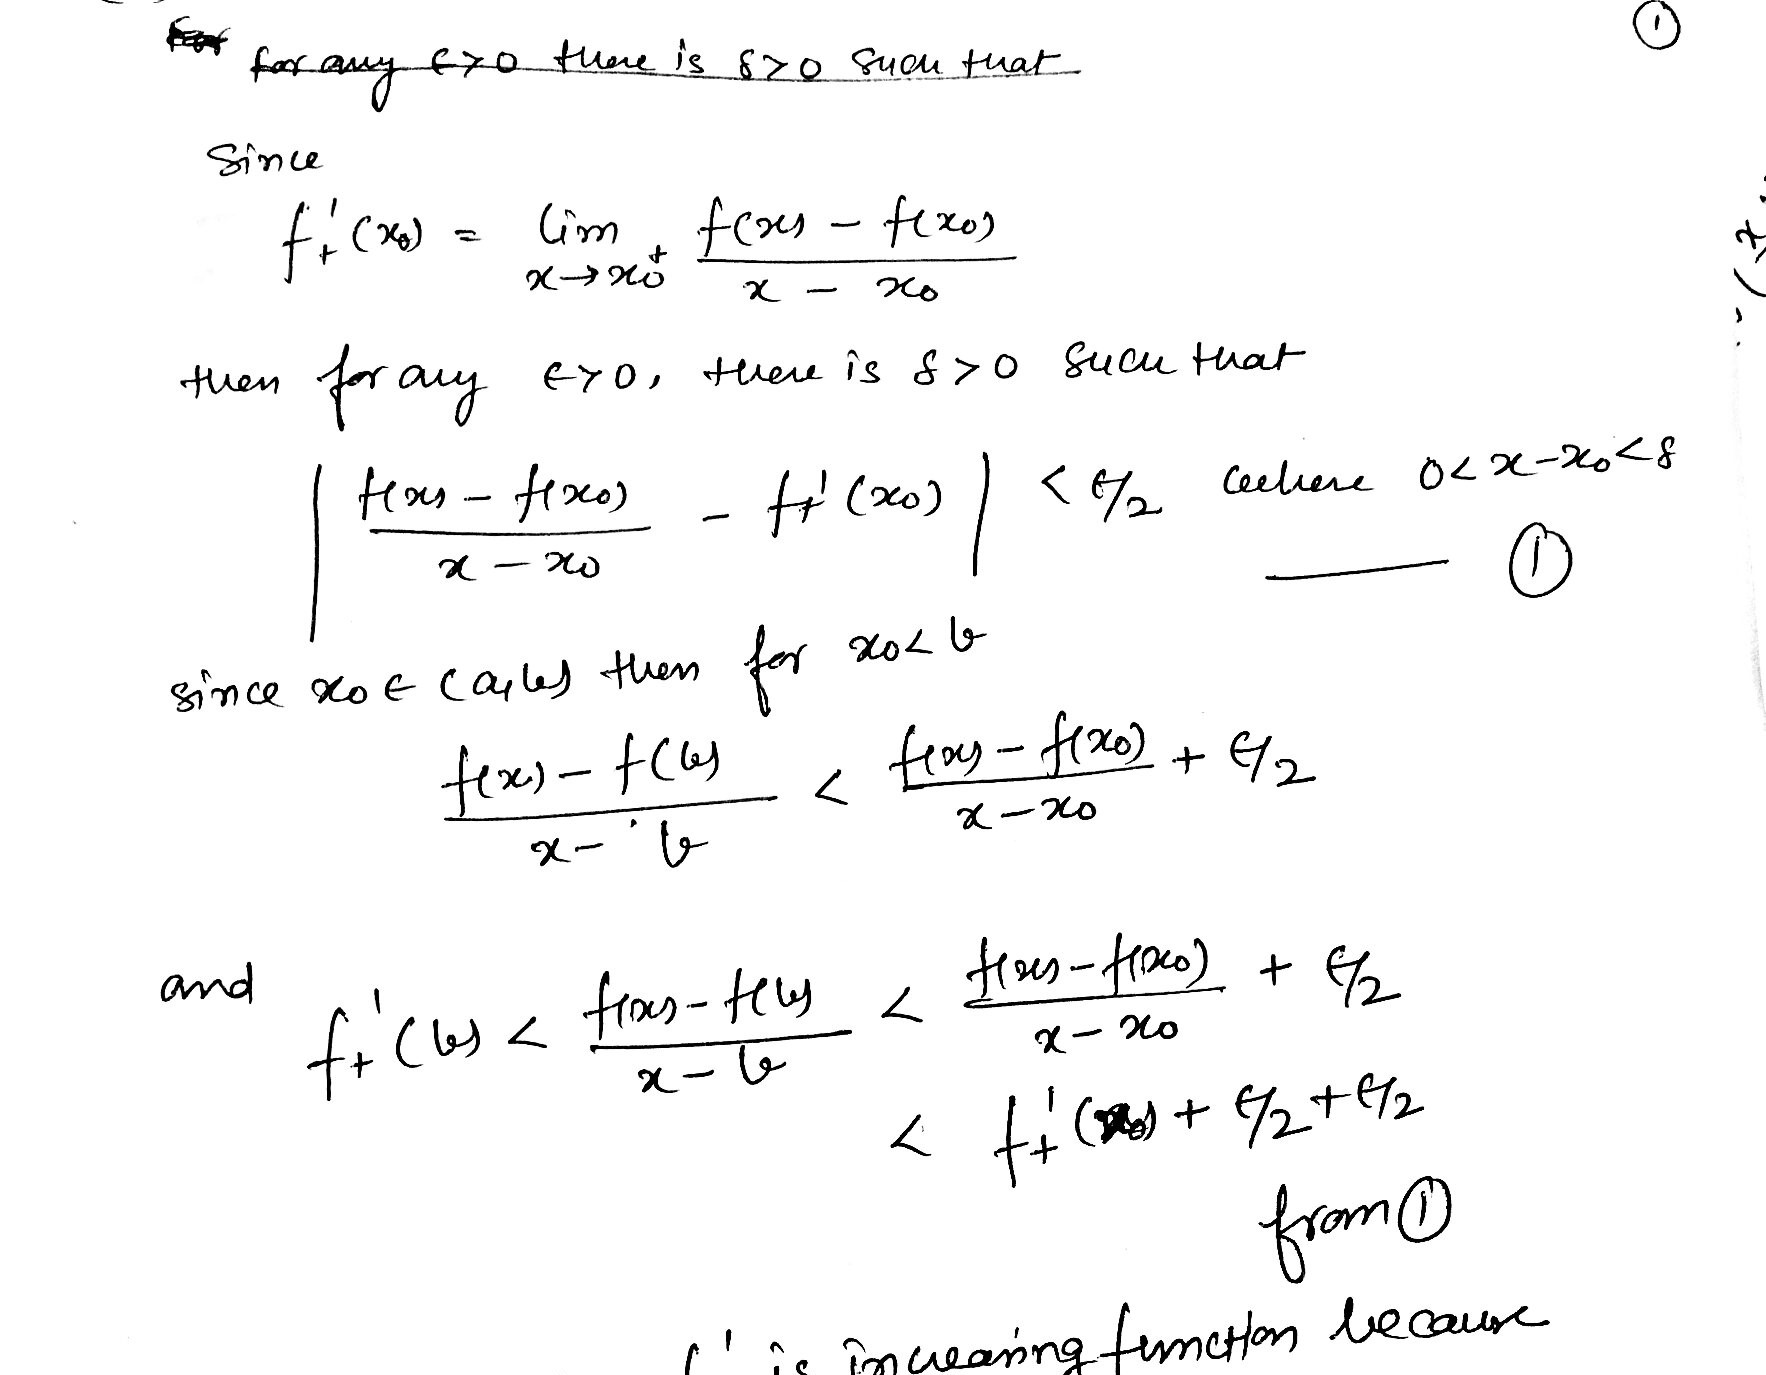 ①
for any ε>0 there is δ>0 such that
Since
f₊'(x₀) = lim x→x₀⁺ (f(x) - f(x₀)) / (x - x₀)
then for any ε>0, there is δ>0 such that
| (f(x) - f(x₀)) / (x - x₀) - f₊'(x₀) | < ε/2 where 0<x-x₀<δ
—— ①
since x₀ ∈ (a,b) then for x₀<b
(f(x) - f(b)) / (x - b) < (f(x) - f(x₀)) / (x - x₀) + ε/2
and f₊'(b) < (f(x) - f(b)) / (x - b) < (f(x) - f(x₀)) / (x - x₀) + ε/2
< f₊'(x₀) + ε/2 + ε/2
from ①
f' is increasing function because